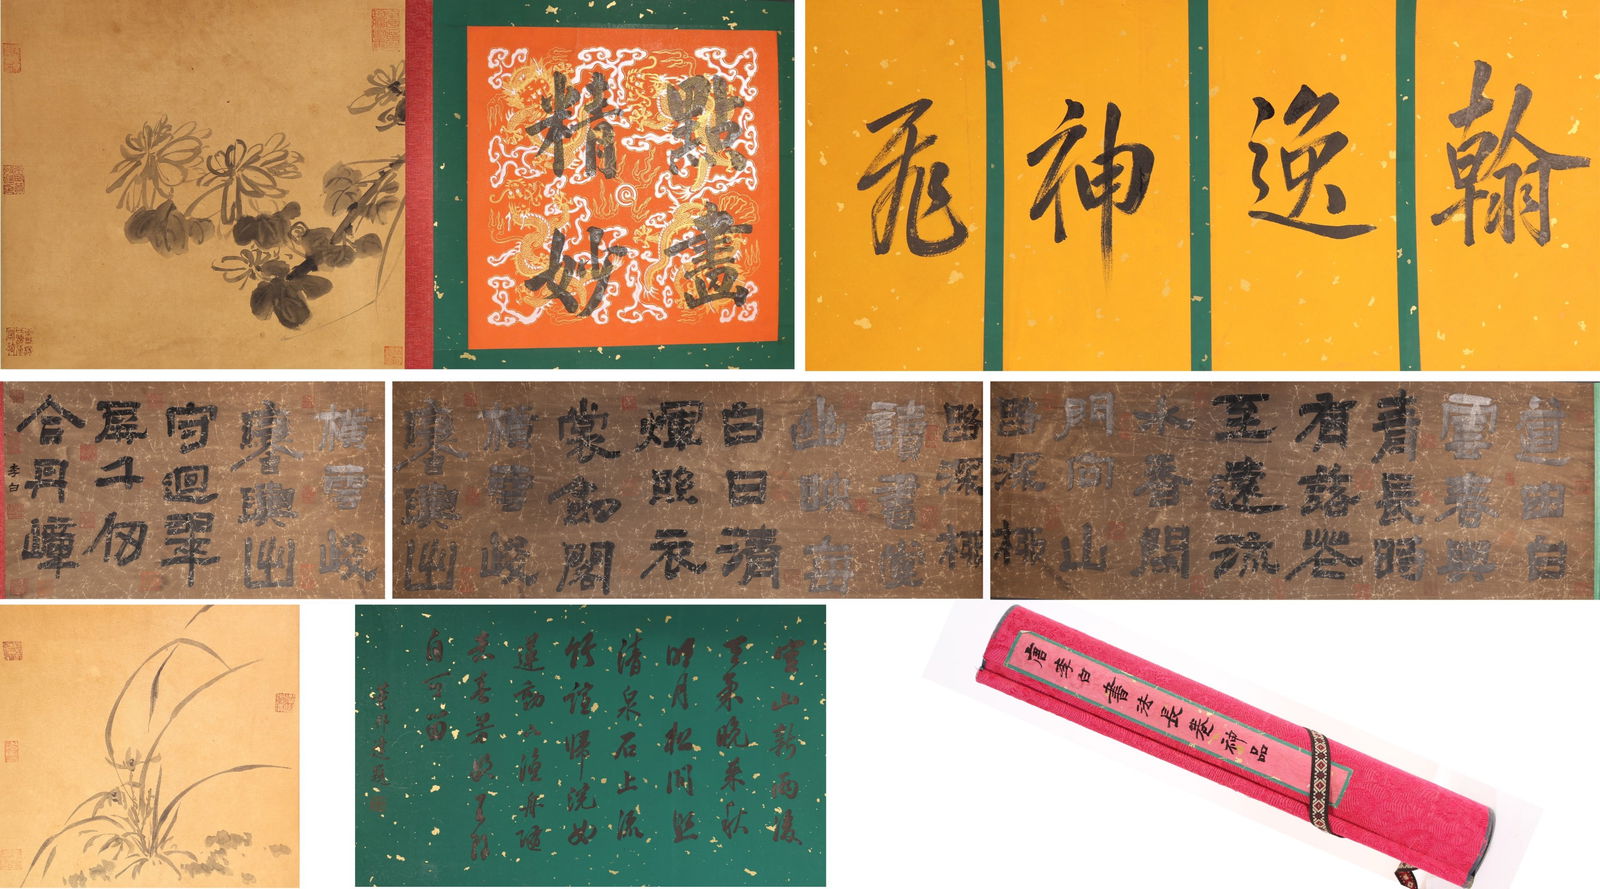 點畫
精妙
翰逸神飛
道由白
雲春與
青長時
有落花
至遠流
水香閒
門向山
路深柳
路深柳
讀書堂
幽映每
白日清
煇照衣
裳劍閣
橫雲峻
輿出
橫雲峻
輿出
守迴翠
屏千仞
合丹嶂
李白
空山新雨後
天氣晚來秋
明月松間照
清泉石上流
竹喧歸浣女
蓮動下漁舟隨
意春芳歇王孫
自可留
唐李白書法長卷神品